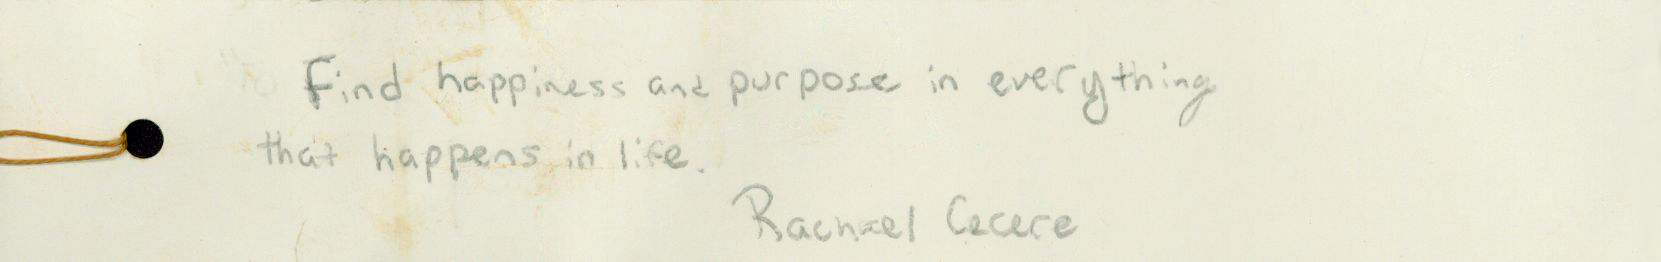 Find happiness and purpose in everything
that happens in life.
Rachael Cecere